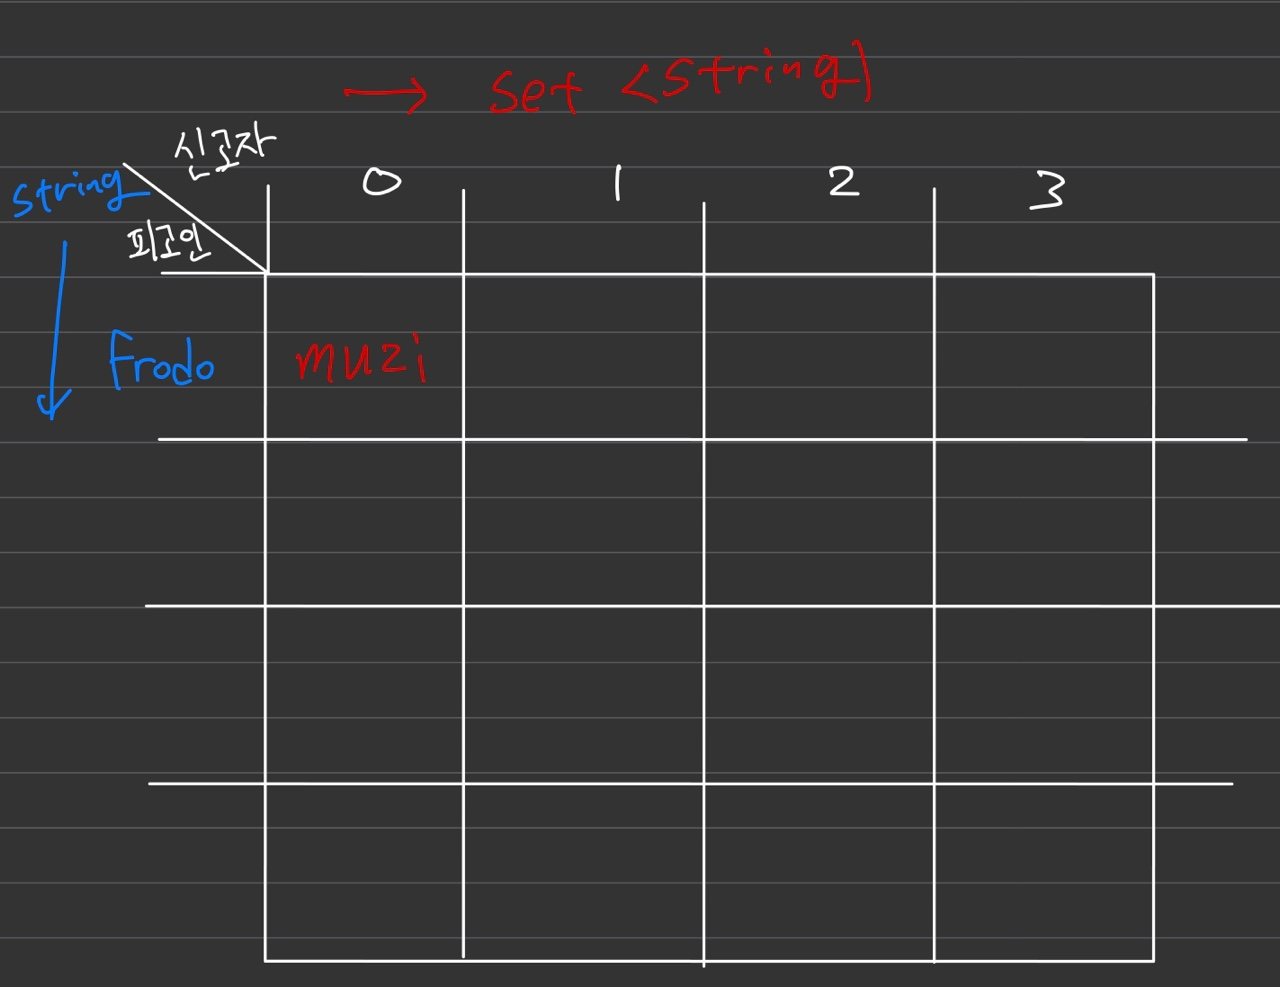 → Set <String>
신고자
String
피고인
0 1 2 3
Frodo muzi